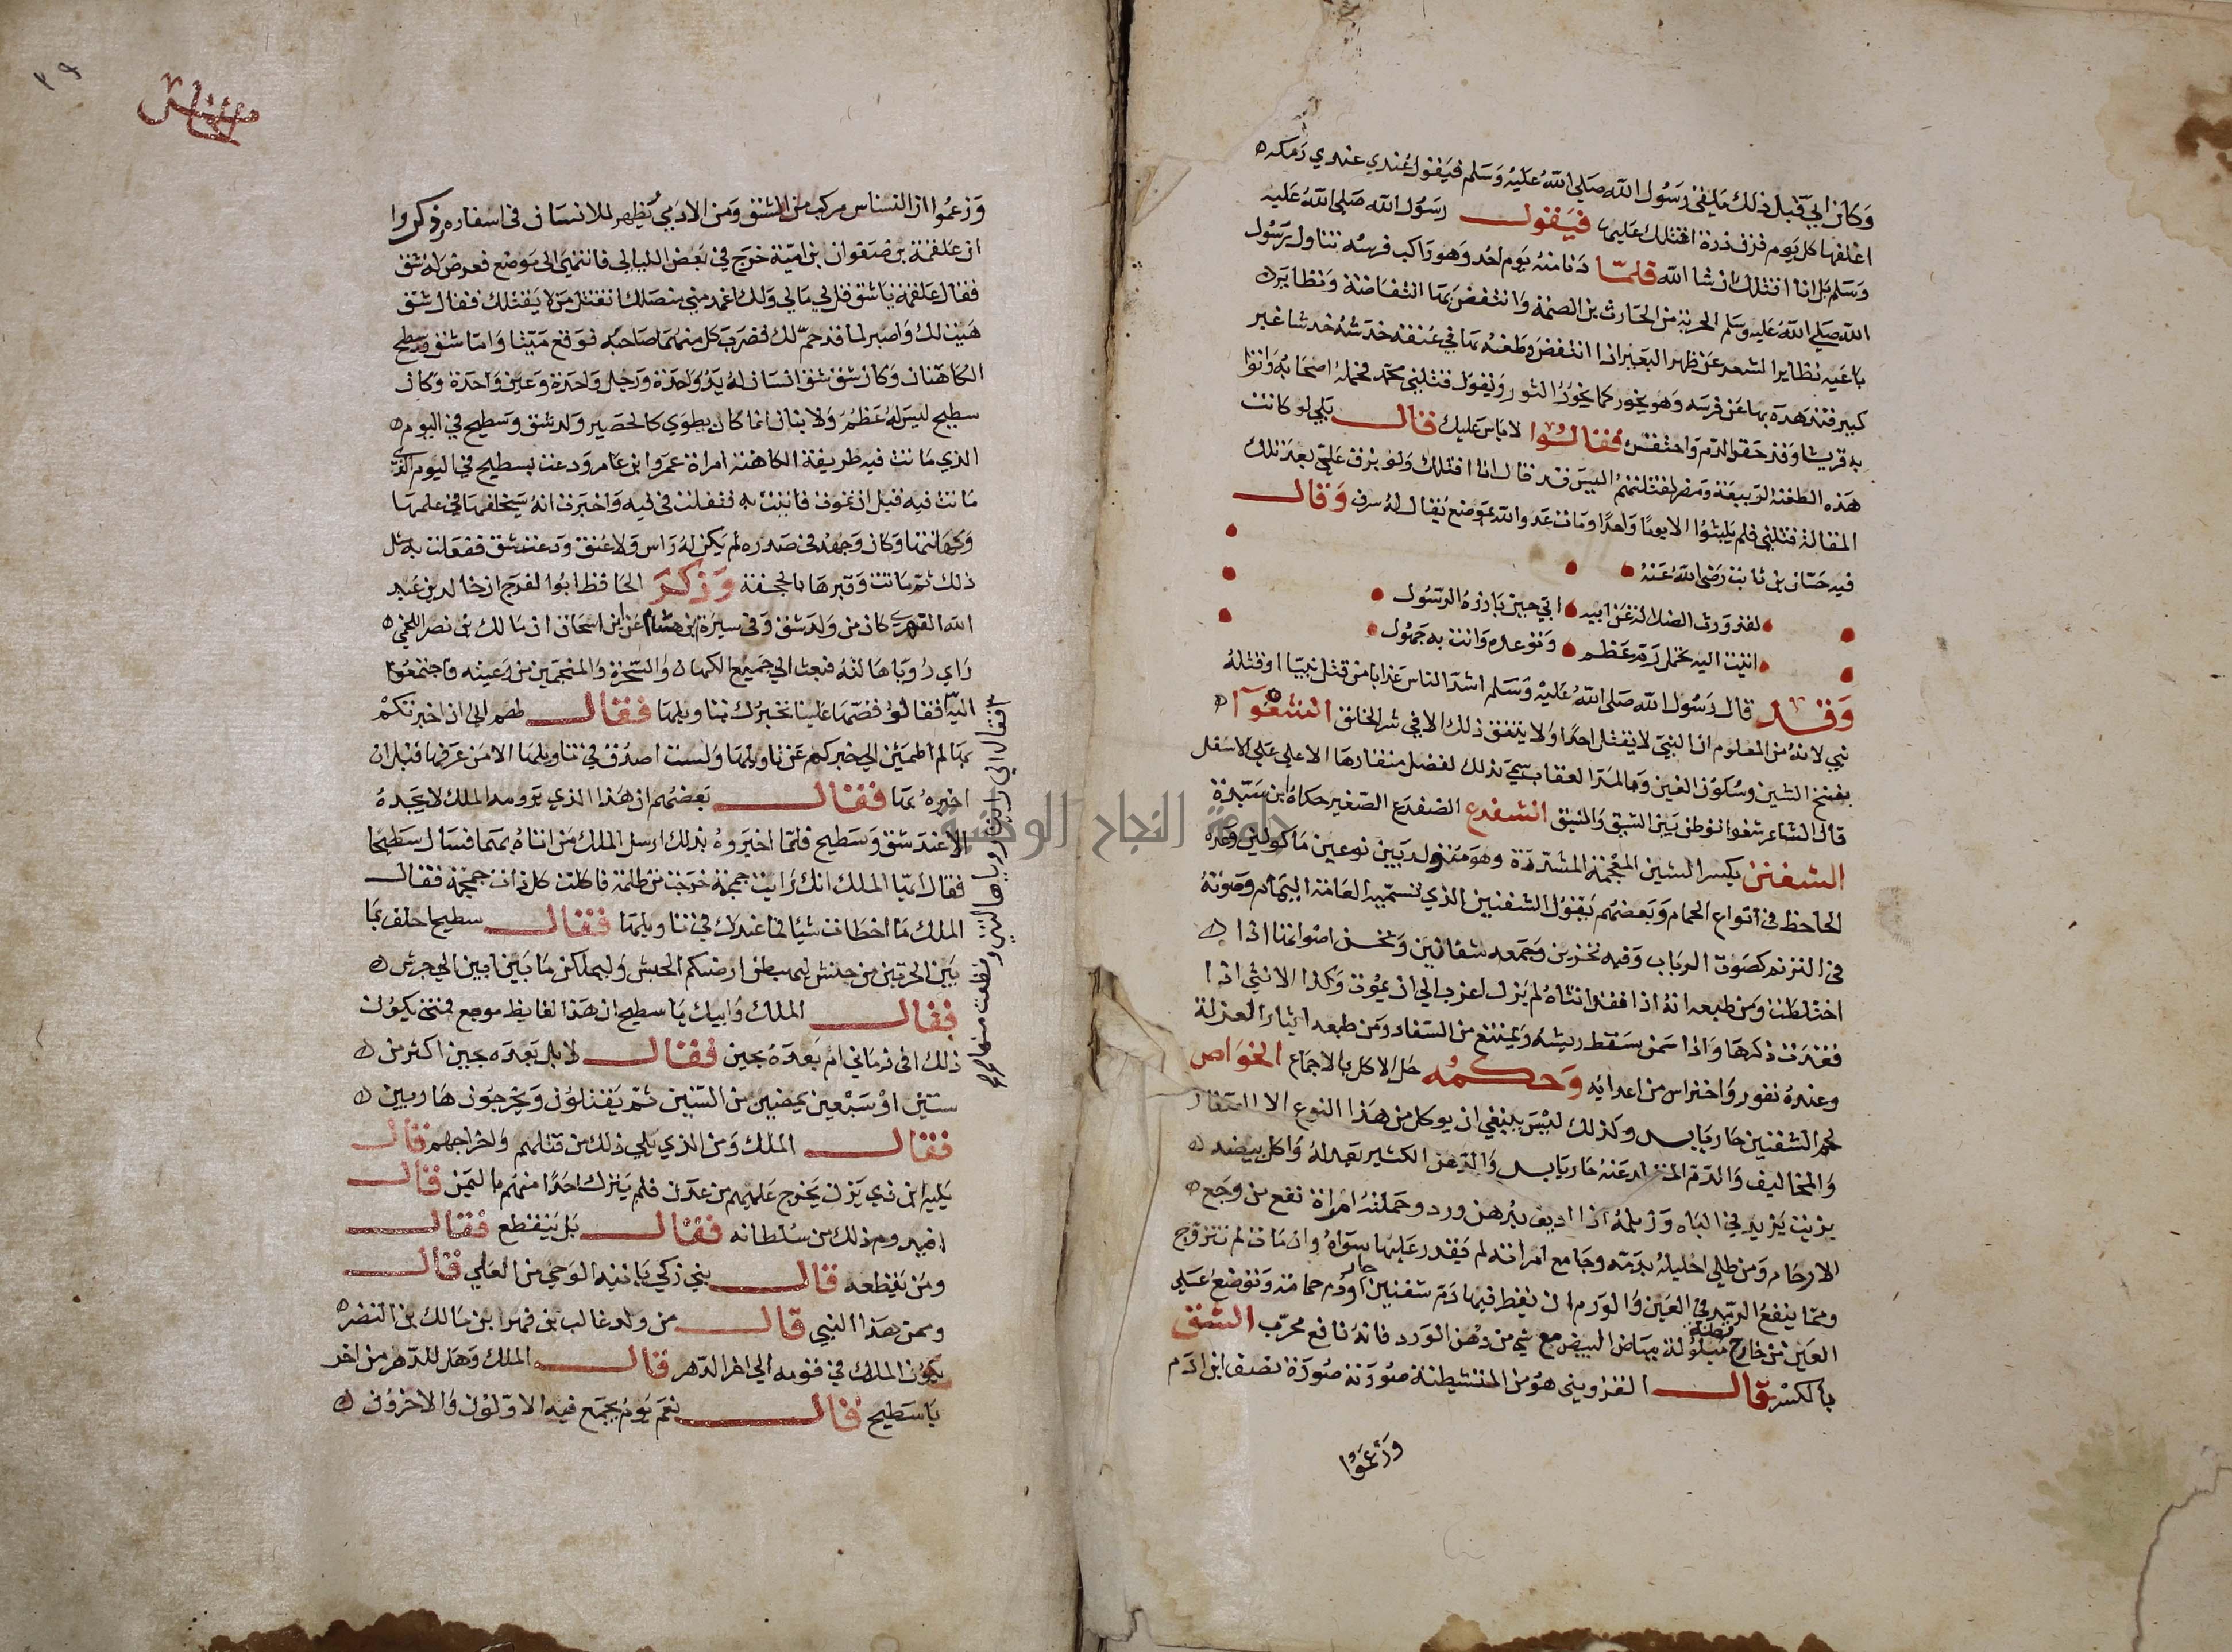 وكان ابي قبل ذلك يلقي رسول الله صلي الله عليه وسلم فيقول عندي عندي رمكه
اعلفها كل يوم فرق ذرة اقتلك عليها فيقول رسول الله صلي الله عليه
وسلم بل انا اقتلك ان شا الله فلما دنا منه يوم احد وهو راكب فرسه تناول رسول
الله صلي الله عليه وسلم الحربة من الحارث بن الصمة وانتفض بها انتفاضة وتطاير
باعيه تطاير الشعر عن ظهر البعير اذا انتفض وطعنه بها في عنقه خدشه خدشا غير
كبير فتدهده بها عن فرسه وهو يخور كما يخور الثور ويقول قتلني محمد فحمله اصحابه واتوا
به قريشا وقد حقن الدم واحتقن فقالوا لا باس عليك قال بلي لو كانت
هذه الطعنة بربيعة ومضر لقتلتهم اليس قد قال انا اقتلك ولو بزق علي بعد تلك
المقالة قتلني فلم يلبثوا الا يوما واحدا ومات عدو الله بموضع يقال له سرف وقال
فيه حسان بن ثابت رضي الله عنه
لقد ورث الضلالة عن ابيه ابي حين بارزه الرسول
اتيت اليه تحمل رمة عظم وتوعده وانت به جهول
وقد قال رسول الله صلي الله عليه وسلم اشد الناس عذابا من قتل نبيا او قتله
نبي لانه من المعلوم ان النبي لا يقتل احدا ولا يتفق ذلك الا في شر الخلق الشغوا
بفتح الشين وسكون الغين وبالمد العقاب سمي بذلك لفضل منقارها الاعلي علي الاسفل
قال الشاعر شغوا توطن بين الشيق والنيق الشفدع الضفدع الصغير حكاه ابن سيدة
الشفنن بكسر الشين المعجمة المشددة وهو متولد بين نوعين ماكولين وعده
الجاحظ في انواع الحمام وبعضهم يقول الشفنين الذي تسميه العامة اليمام وصوته
في الترنم كصوت الرباب وفيه تحزين وجمعه شفانين وتحسن اصواتها اذا
اختلطت ومن طبعه انه اذا فقد انثاه لم يزل اعزب الي ان يموت وكذا الانثي اذا
فقدت ذكرها واذا سمن سقط ريشه ويمتنع من السفاد ومن طبعه ايثار العزلة
وعنده نفور واحتراس من اعدايه وحكمه حل الاكل بالاجماع الخواص
لحم الشفنين حار يابس وكذلك ليس ينبغي ان يوكل من هذا النوع الا الصغار
والمخاليف والدم المتولد عنه حار يابس والدهن الكثير يعدله واكل بيضه
بزيت يزيد في الباه وزبله اذا اديف بدهن ورد وحملته امراة نفع من وجع
الارحام ومن طلي احليله بدمه وجامع امراته لم يقدر عليها سواه وان مات لم تتزوج
ومما ينفع الرمد في العين والورم ان يقطر فيها دم شفنين حار او دم حمامة وتوضع علي
العين من خارج قطنة مبلولة ببياض البيض مع شي من دهن الورد فانه نافع مجرب الشق
بالكسر قال القزويني هو من المتشيطنة صورته صورة نصف ابن ادم
وزعموا
٣٩
وزعموا ان النسناس مركب من الشق ومن الادمي يظهر للانسان في اسفاره وذكروا
ان علقمة بن صفوان بن امية خرج في بعض الليالي فانتهي الي موضع فعرض له شق
فقال علقمة يا شق فل لي مالي ولك اغمد مني منصلك اتقتل من لا يقتلك فقال شق
هيت لك واصبر لما قد حم لك فضرب كل منهما صاحبه فوقع ميتا واما شق وسطيح
الكاهنان وكان شق شق انسان له يد واحدة ورجل واحدة وعين واحدة وكان
سطيح ليس له عظم ولا بنان انما كان يطوي كالحصير ولد شق وسطيح في اليوم
الذي ماتت فيه طريفة الكاهنة امراة عمرو ابن عامر ودعت بسطيح في اليوم الذي
ماتت فيه قبل ان تموت فاتيت به فتفلت في فيه واخبرت انه سيخلفها في علمها
وكهانتها وكان وجهه في صدره لم يكن له راس ولا عنق ودعت بشق ففعلت به مثل
ذلك ثم ماتت وقبرها بالجحفة وذكر الحافظ ابوا لفرج ان خالد بن عبد
الله القسري كان من ولد شق وفي سيرة ابن هشام عن ابن اسحاق ان مالك بن نصر اللخمي
راي رويا هالته فبعث الي جميع الكهان والسحرة والمنجمين من رعيته فاجتمعوا
اليه فقالوا قصها علينا نخبرك بتاويلها فقال لهم اني ان اخبرتكم
بها لم اطمئن الي خبركم عن تاويلها ولست اصدق في تاويلها الا من عرفها قبل ان
اخبره بها فقال بعضهم ان هذا الذي يرومه الملك لا يجده
الا عند شق وسطيح فلما اخبروه بذلك ارسل الملك من اتاه بهما فسال سطيحا
فقال ايها الملك انك رايت جمجمة خرجت من ظلمة فاكلت كل ذات جمجمة فقال
الملك ما اخطات شيئا فما عندك في تاويلها فقال سطيح احلف بما
بين الحرتين من حنش ليهبطن ارضكم الحبش وليملكن ما بين ابين الي جرش
فقال الملك وابيك يا سطيح ان هذا لغايظ موجع فمتي يكون
ذلك افي زماني ام بعده بحين فقال لا بل بعده بحين اكثر من
ستين او سبعين يمضين من السنين ثم يقتلون ويخرجون هاربين
فقال الملك ومن الذي يلي ذلك من قتلهم واخراجهم قال
يليه ابن ذي يزن يخرج عليهم من عدن فلم يترك احدا منهم باليمن قال
افيدوم ذلك من سلطانه فقال بل ينقطع فقال
ومن يقطعه قال نبي زكي ياتيه الوحي من العلي قال
وممن هذا النبي قال من ولد غالب بن فهر ابن مالك بن النضر
يكون الملك في قومه الي اخر الدهر قال الملك وهل للدهر من اخر
يا سطيح قال نعم يوم يجمع فيه الاولون والاخرون
جامعة النجاح الوطنية